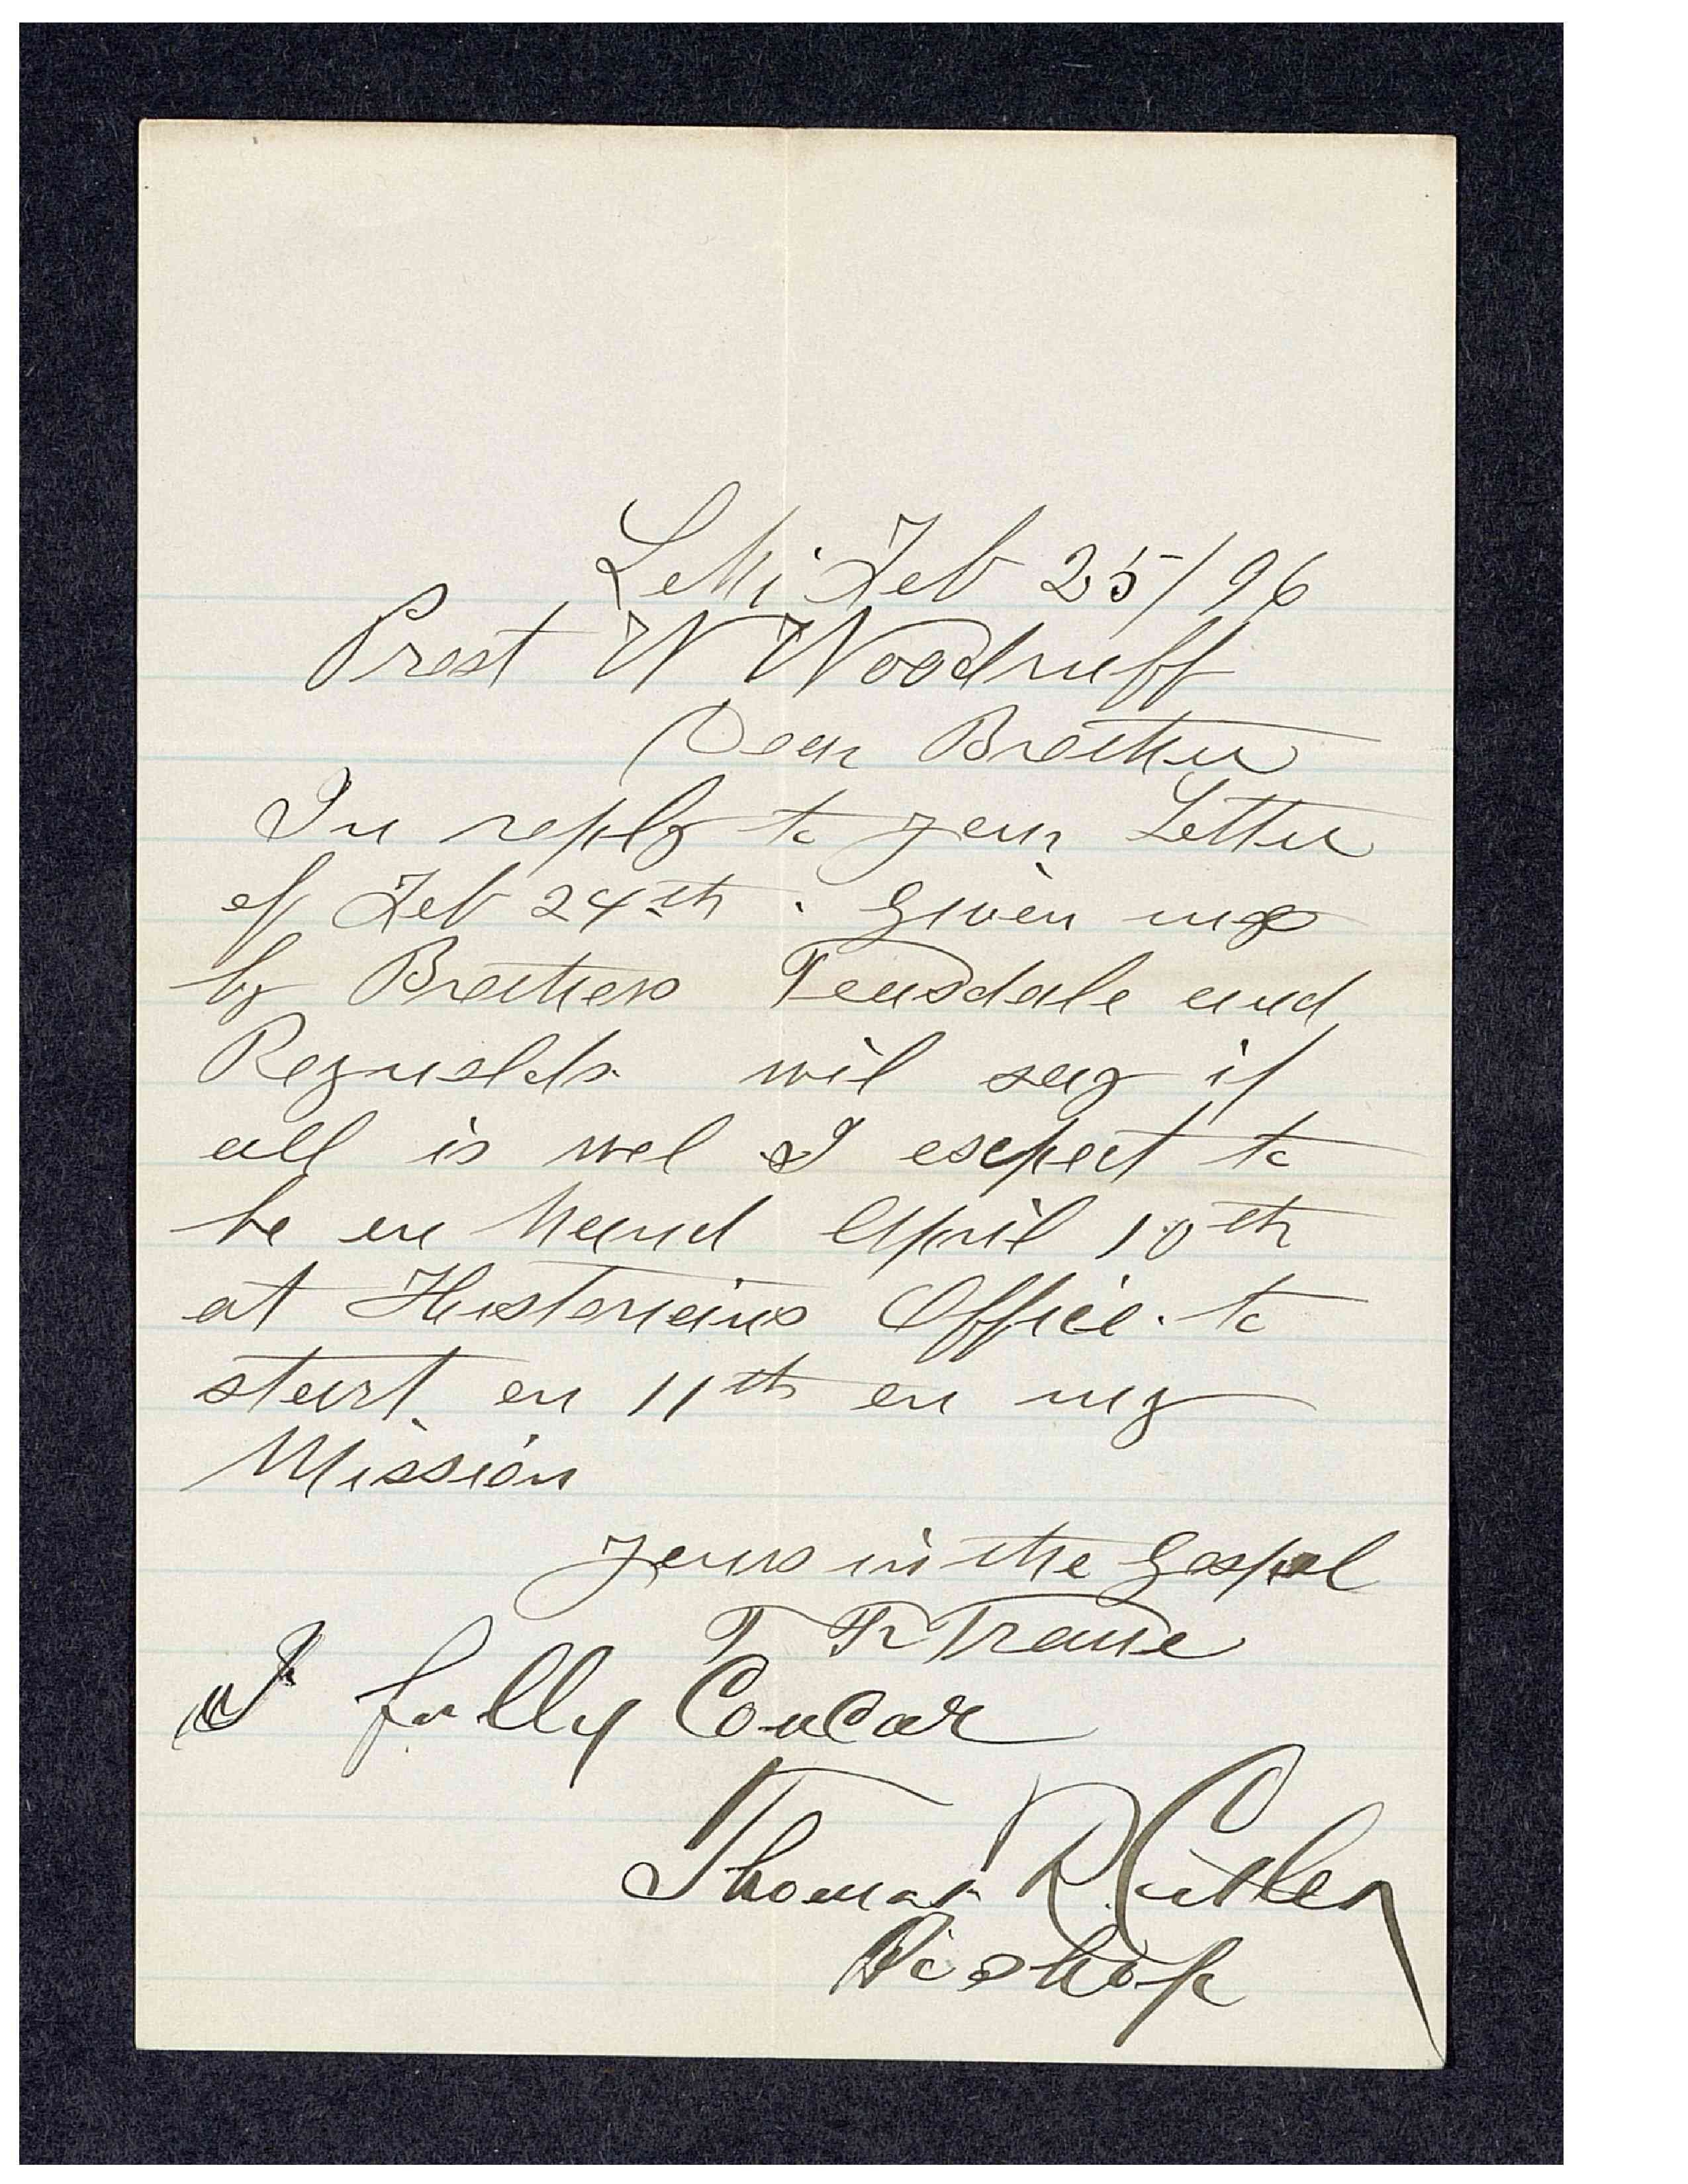 Lehi Feb 25/96
Prest W Woodruff
Dear Brother
In reply to your Letter
of Feb 24th. Given me
by Brothers Teasdale and
Reynolds wil say if
all is wel I escpect to
be on hand April 10th
at Historians Office. to
start on 11th on my
Mission
Yours in the Gospel
T F Trane
I fully Concar
Thomas R Cutler
Bishop